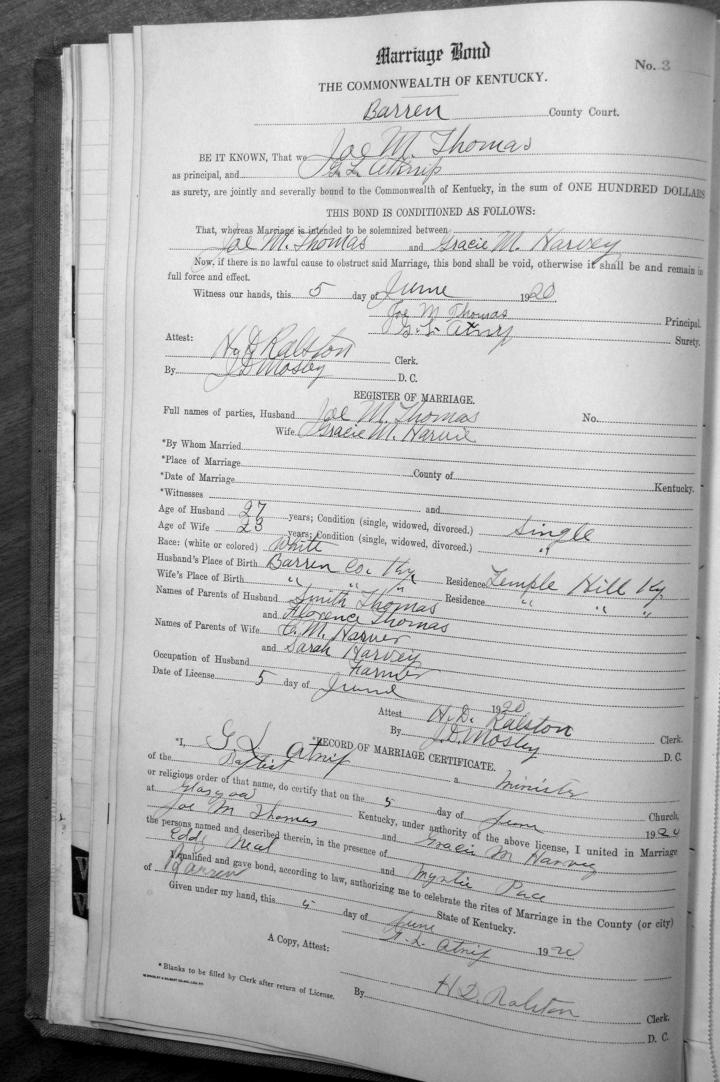 Marriage Bond
No. 3
THE COMMONWEALTH OF KENTUCKY.
Barren County Court.
BE IT KNOWN, That we Joe M. Thomas
as principal, and G. L. Atnip
as surety, are jointly and severally bound to the Commonwealth of Kentucky, in the sum of ONE HUNDRED DOLLARS
THIS BOND IS CONDITIONED AS FOLLOWS:
That, whereas Marriage is intended to be solemnized between
Joe M. Thomas and Gracie M. Harvey
Now, if there is no lawful cause to obstruct said Marriage, this bond shall be void, otherwise it shall be and remain in
full force and effect.
Witness our hands, this 5 day of June 1920
Joe M Thomas Principal.
G. L. Atnip Surety.
Attest:
H. D. Ralston Clerk.
By J. D. Mosley D. C.
REGISTER OF MARRIAGE.
Full names of parties, Husband Joe M. Thomas No.
Wife Gracie M. Harvie
*By Whom Married
*Place of Marriage County of
*Date of Marriage Kentucky.
*Witnesses and
Age of Husband 27 years; Condition (single, widowed, divorced.) Single
Age of Wife 23 years; Condition (single, widowed, divorced.) "
Race: (white or colored) White
Husband's Place of Birth Barren Co. Ky. Residence Temple Hill Ky
Wife's Place of Birth " " " Residence " " "
Names of Parents of Husband Smith Thomas
and Florence Thomas
Names of Parents of Wife C. M. Harver
and Sarah Harvey
Occupation of Husband Farmer
Date of License 5 day of June 1920
Attest H. D. Ralston Clerk.
By J. D. Mosley D. C.
*RECORD OF MARRIAGE CERTIFICATE.
*I, G. L. Atnip a minister
of the Baptist Church,
or religious order of that name, do certify that on the 5 day of June 1920
at Glasgow Kentucky, under authority of the above license, I united in Marriage
Joe M Thomas and Gracie M Harvey
the persons named and described therein, in the presence of
Eddy Neal and Myrtie Pace
I qualified and gave bond, according to law, authorizing me to celebrate the rites of Marriage in the County (or city)
of Barren State of Kentucky.
Given under my hand, this 5 day of June 1920
G. L. Atnip
A Copy, Attest:
H D. Ralston Clerk.
By D. C.
*Blanks to be filled by Clerk after return of License.